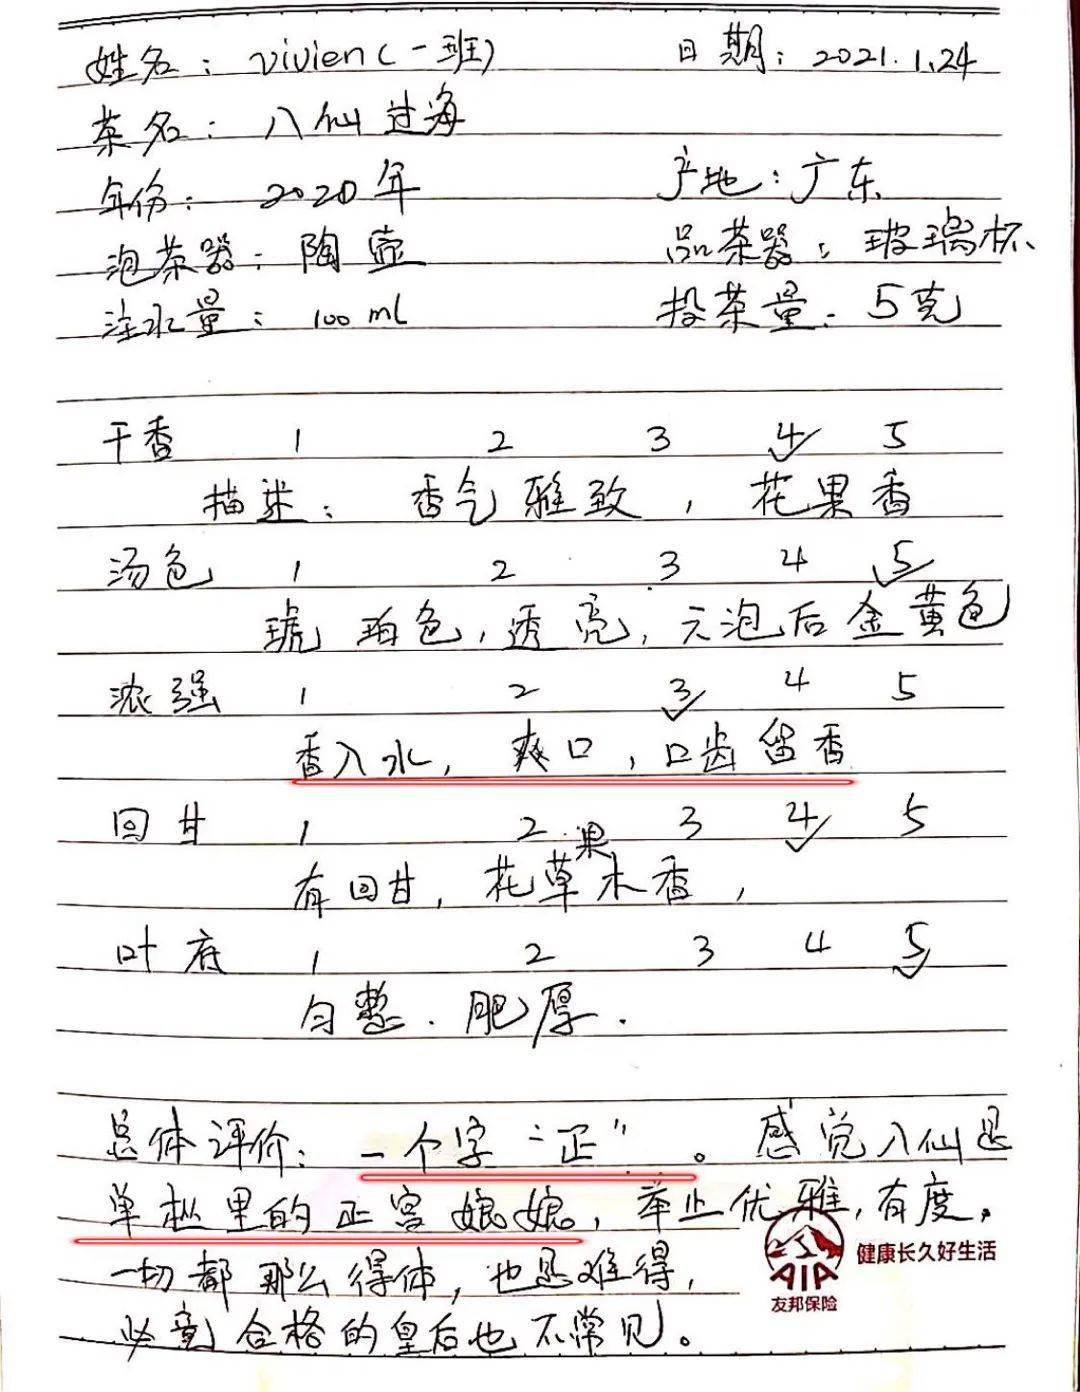 姓名：vivien（一班） 日期：2021.1.24
茶名：八仙过海
年份：2020年 产地：广东
泡茶器：陶壶 品茶器：玻璃杯
注水量：100ml 投茶量：5克
干香 1 2 3 4✓ 5
描述：香气雅致，花果香
汤色 1 2 3 4 5✓
琥珀色，透亮，六泡后金黄色
浓强 1 2 3✓ 4 5
香入水，爽口，口齿留香
回甘 1 2 3 4✓ 5
果
有回甘，花草木香，
叶底 1 2 3 4 5✓
匀整．肥厚．
总体评价：一个字“正”。感觉八仙是
单枞里的正宫娘娘，举止优雅，有度。
一切都那么得体，也是难得，
毕竟合格的皇后也不常见。
AIA
友邦保险
健康长久好生活